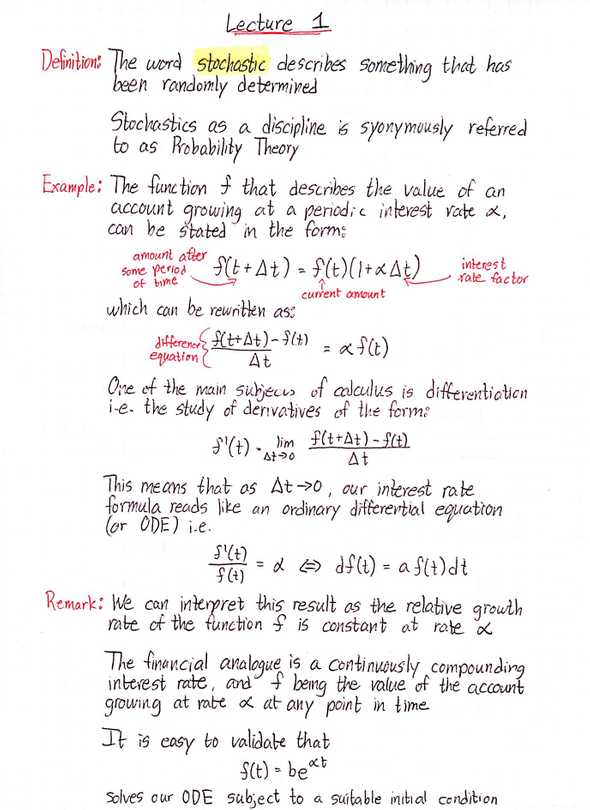 Lecture 1
Definition: The word stochastic describes something that has
been randomly determined
Stochastics as a discipline is syonymously referred
to as Probability Theory
Example: The function f that describes the value of an
account growing at a periodic interest rate α,
can be stated in the form:
amount after
some period
of time
f(t+Δt) = f(t)(1+αΔt)
interest
rate factor
current amount
which can be rewritten as:
difference
equation
f(t+Δt)-f(t)
Δt
= αf(t)
One of the main subjects of calculus is differentiation
i.e. the study of derivatives of the form:
f'(t) = lim Δt→0 f(t+Δt)-f(t)
Δt
This means that as Δt→0, our interest rate
formula reads like an ordinary differential equation
(or ODE) i.e.
f'(t)
f(t)
= α ⇔ df(t) = af(t)dt
Remark: We can interpret this result as the relative growth
rate of the function f is constant at rate α
The financial analogue is a continuously compounding
interest rate, and f being the value of the account
growing at rate α at any point in time
It is easy to validate that
f(t) = be^αt
solves our ODE subject to a suitable initial condition